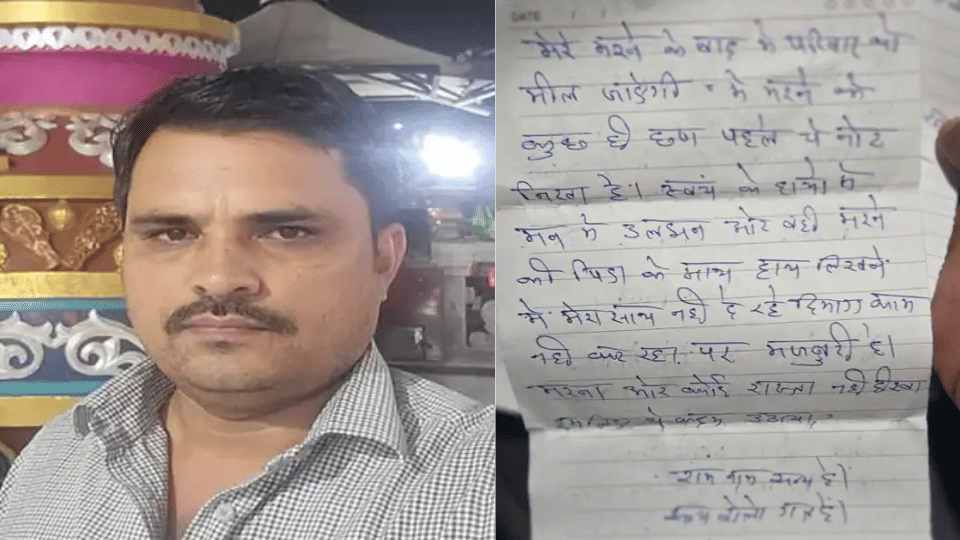 DATE
मेरे मरने के बाद मे परिवार को
मील जाऐगी मे मरने को
कुछ ही छण पहले ये नोट
लिखा है। स्वयं के हाथो से
मन मे उलझन ओर वही मरने
की पिडा के साथ हाथ लिखने
मे मेरा साथ नही दे रहे दिमाग काम
नही कर रहा, पर मजबुरी है।
मरना ओर कोई रास्ता नही दीखा
ये कदम उठाया,
राम नाम सत्य है।
सत्य बोलो गत है।